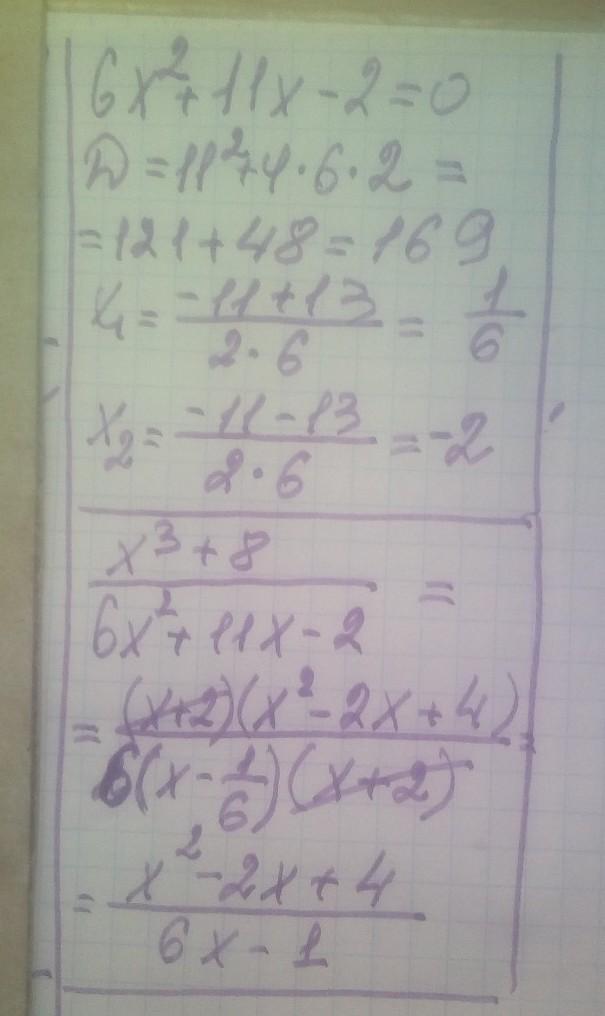 6x²+11x-2=0
D=11²+4·6·2=
=121+48=169
x₁=(-11+13)/(2·6)=1/6
x₂=(-11-13)/(2·6)=-2
(x³+8)/(6x²+11x-2)=
=(x+2)(x²-2x+4)/6(x-1/6)(x+2)=
=(x²-2x+4)/(6x-1)